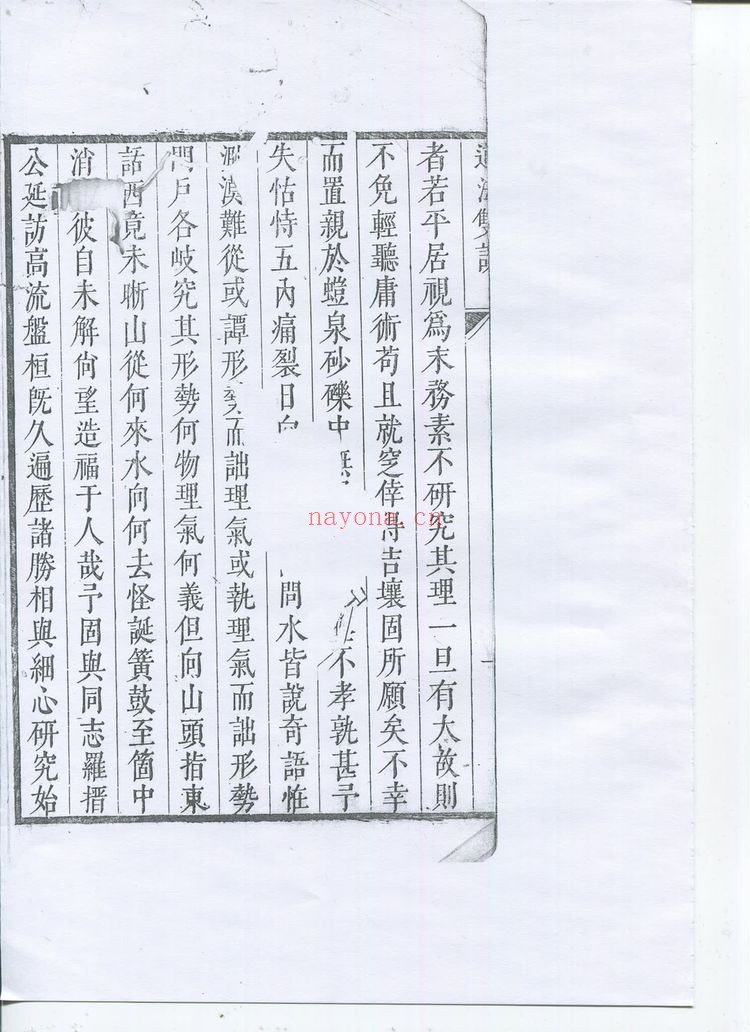 雙
者若平居視爲末務素不研究其理一旦有大故則
不免輕聽庸術苟且就窆倖得吉壤固所願矣不幸
而置親於螘泉砂礫中不孝孰甚予
失怙恃五內痛裂日向問水皆說奇語惟
漠難從或譚形勢而詘理氣或執理氣而詘形勢
門戶各岐究其形勢何物理氣何義但向山頭指東
話西竟未晰山從何來水向何去怪誕簧鼓至箇中
消彼自未解尙望造福于人哉予固與同志羅搢
公延訪高流盤桓旣久遍歷諸勝相與細心研究始
nayona.cn